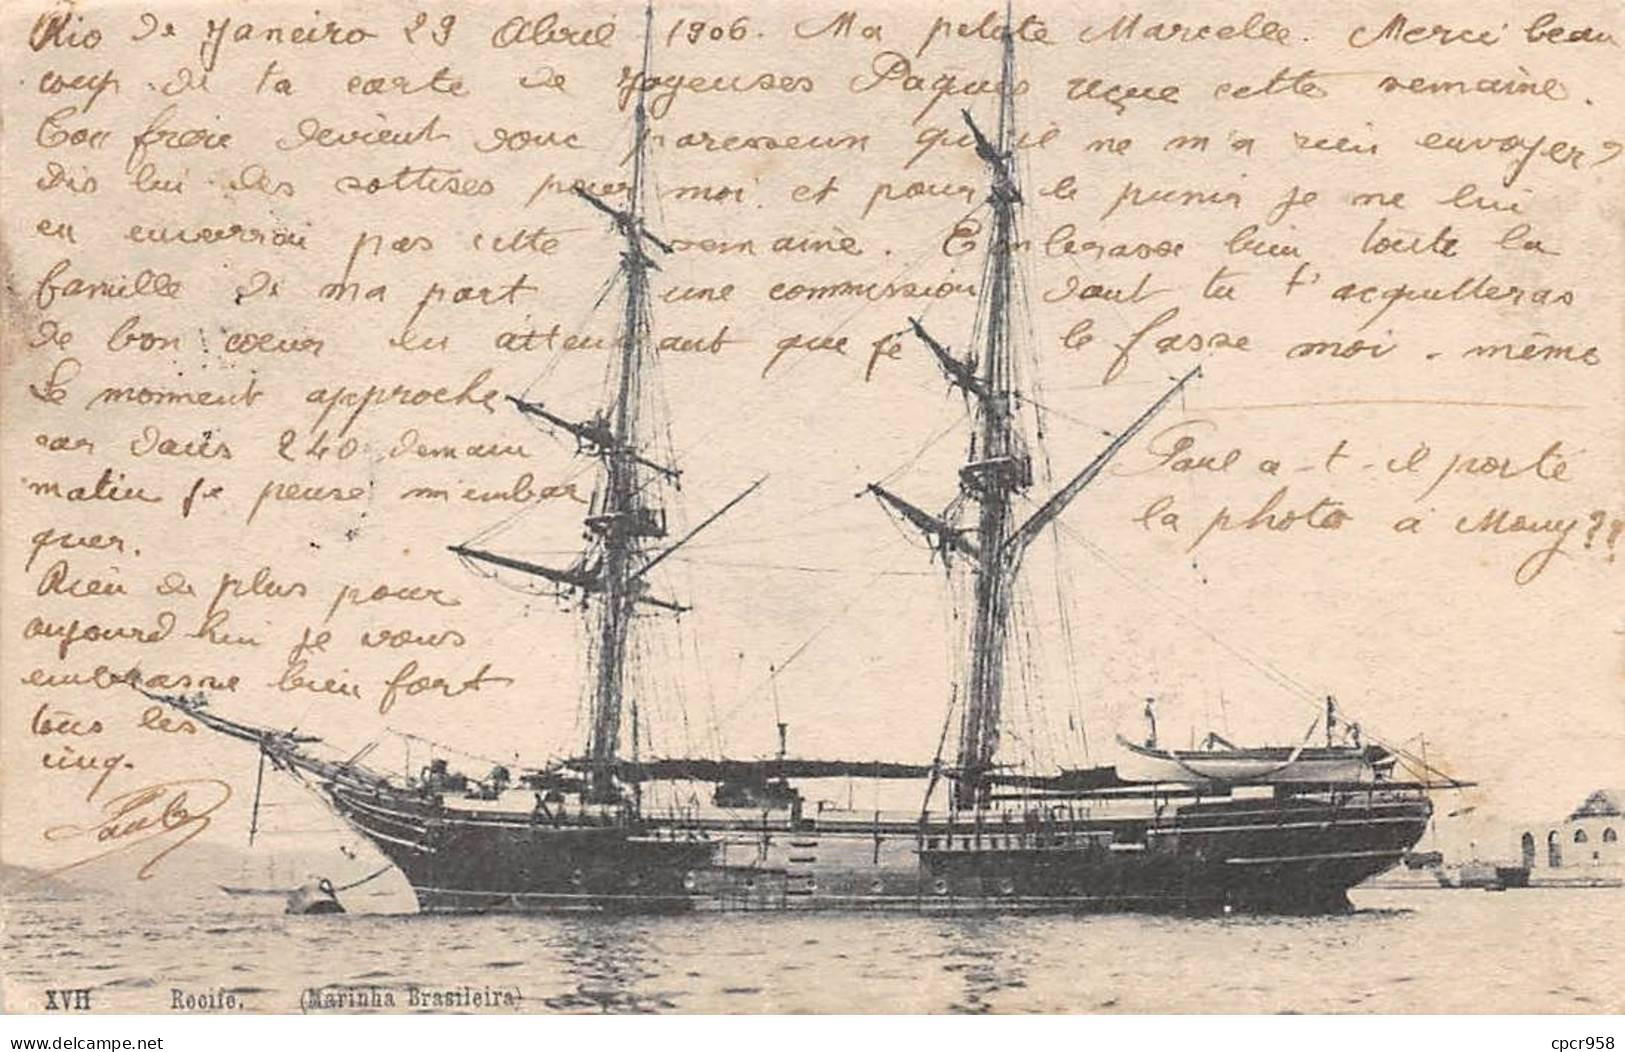 Rio de Janeiro 29 Abril 1906. Ma petite Marcelle. Merci beau
coup de ta carte de Joyeuses Paques reçue cette semaine.
Ton frère devient donc paresseux qu'il ne m'a rien envoyer?
Dis lui des sottises pour moi. et pour le punir je ne lui
en enverrai pas cette semaine. Embrasse bien toute la
famille de ma part une commission dont tu t'acquitteras
de bon coeur en attendant que je le fasse moi-même
Le moment approche
car dans 240 demain
matin je pense m'embar
quer.
Rien de plus pour
aujourd'hui je vous
embrasse bien fort
tous les
cinq.
Paul a-t-il porté
la photo à Mouy??
XVII Recife. (Marinha Brasileira)
delcampe.net
cpcr958